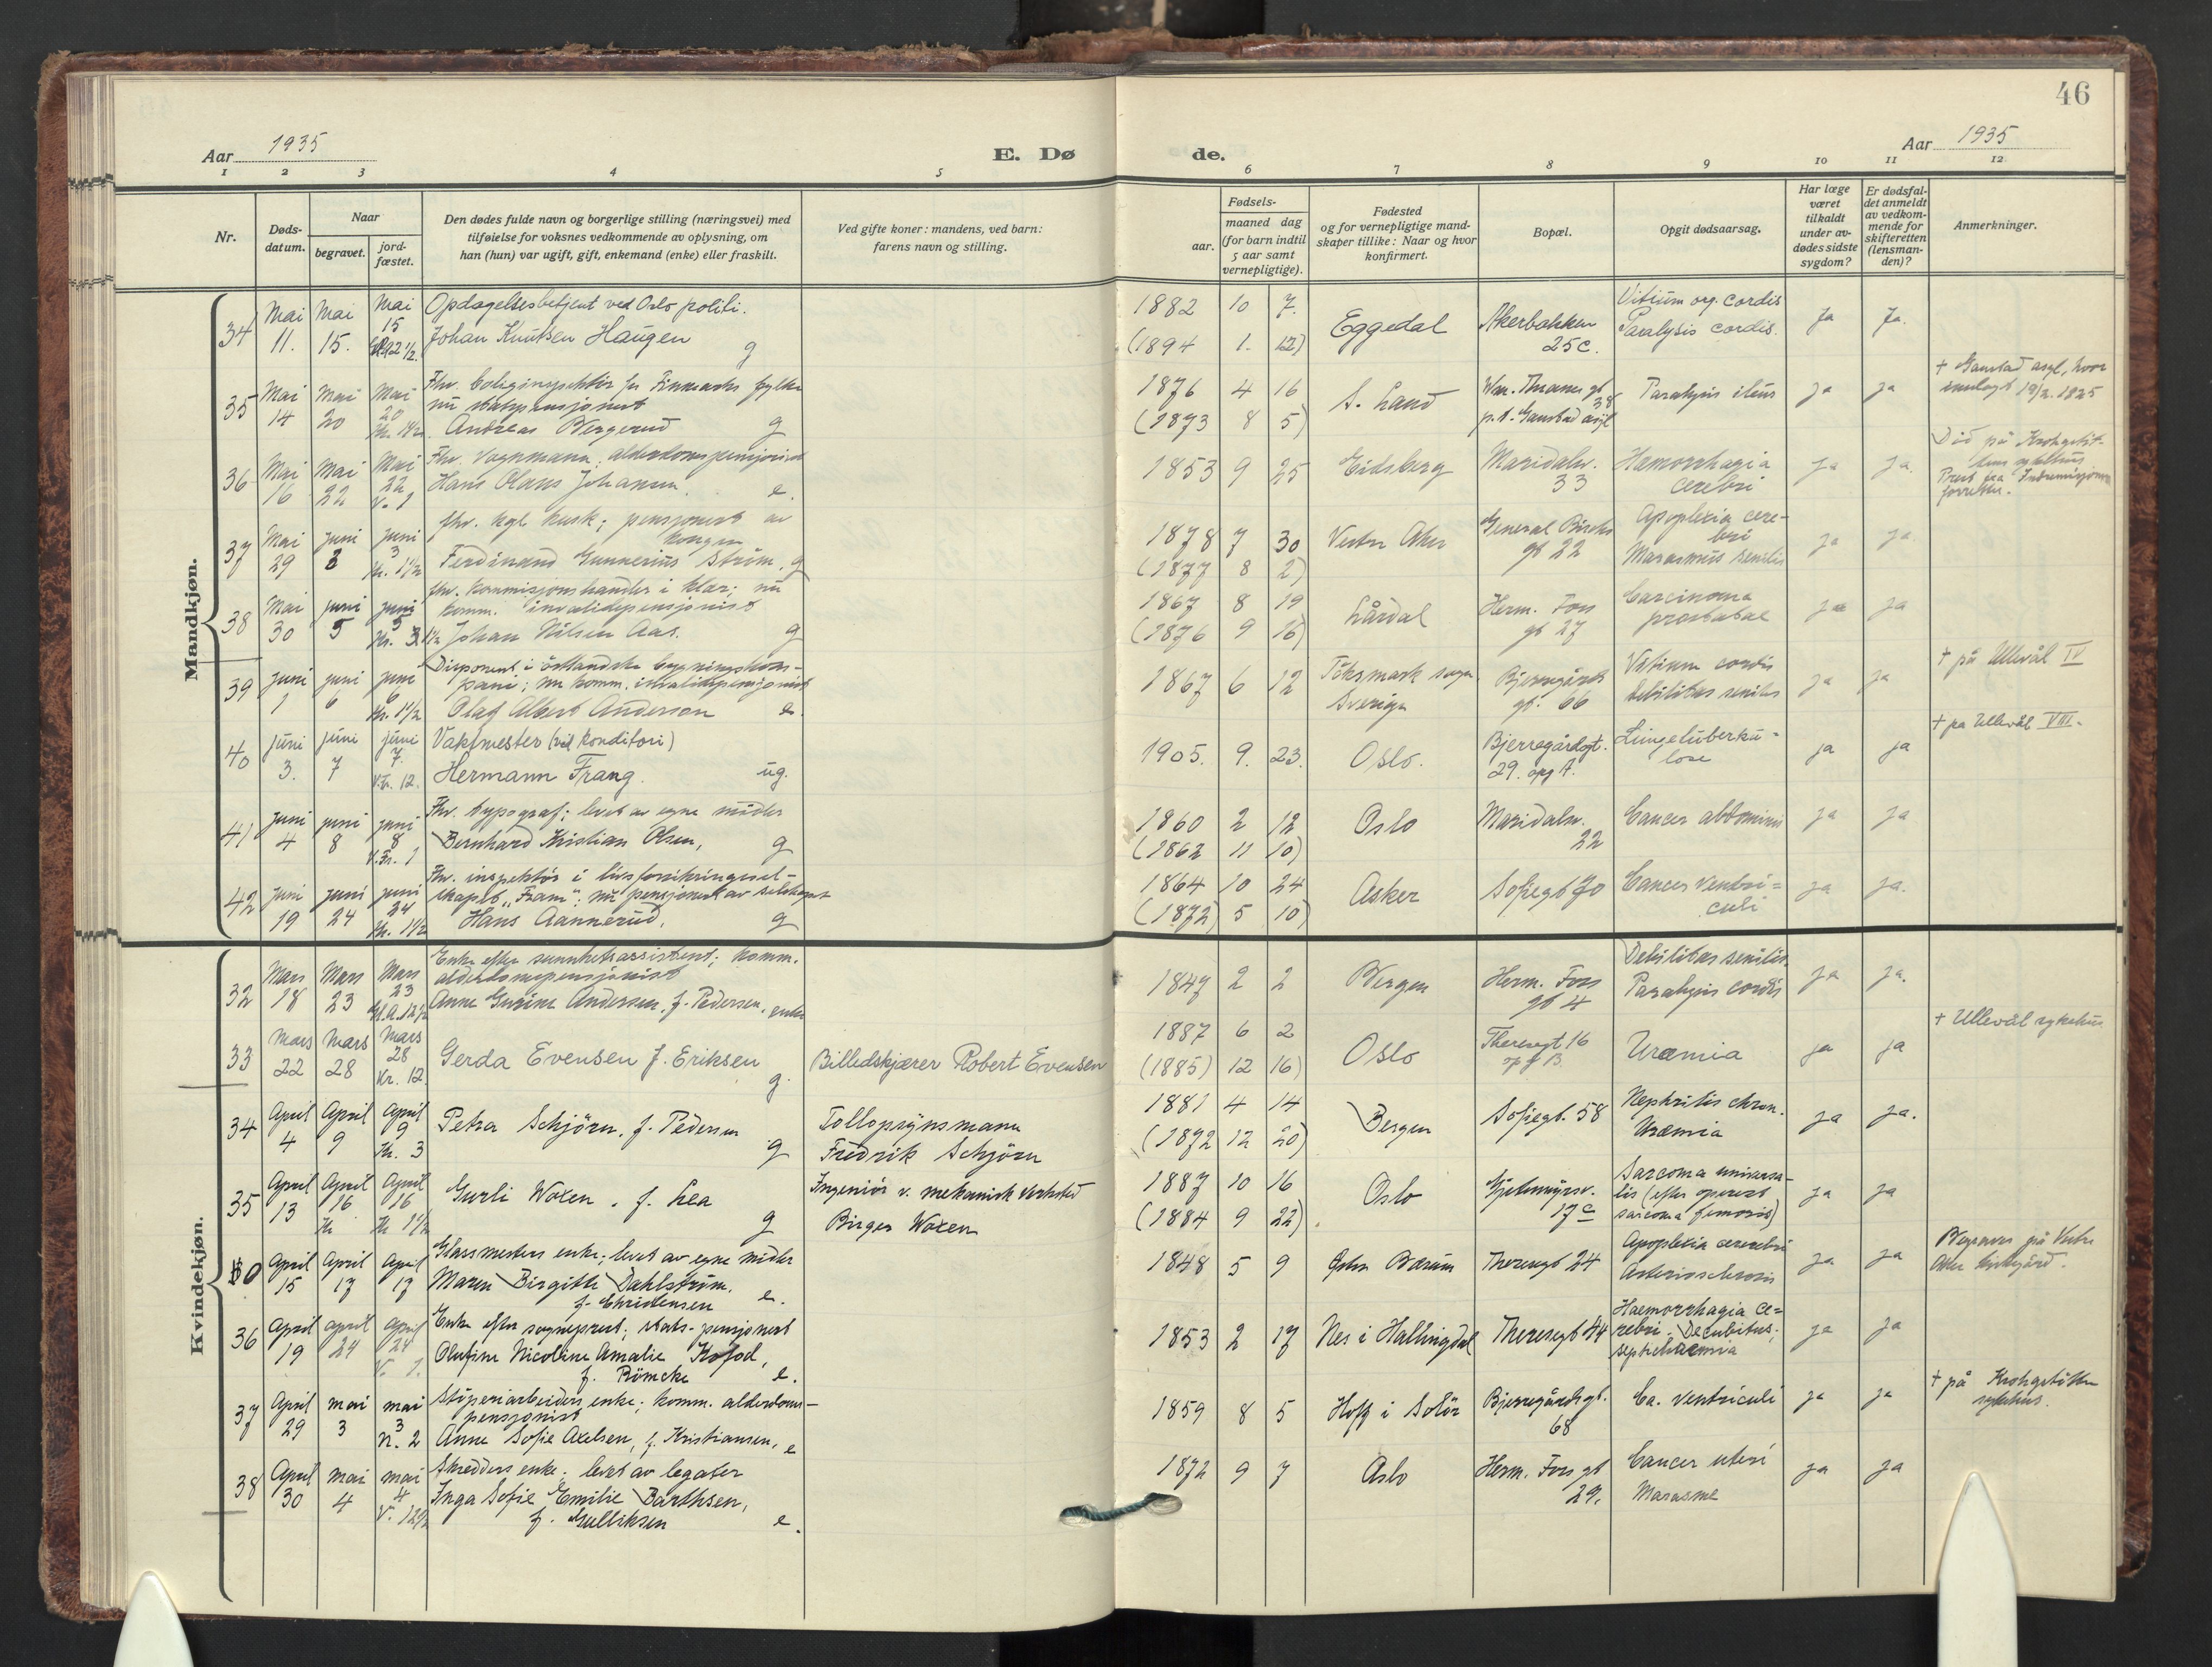 46
Aar 1935
E. Dø
de.
Aar 1935
1 2 3 4 5 6 7 8 9 10 11 12
Nr.
Døds-
datum.
Naar
begravet.
jord-
fæstet.
Den dødes fulde navn og borgerlige stilling (næringsvei) med
tilføielse for voksnes vedkommende av oplysning, om
han (hun) var ugift, gift, enkemand (enke) eller fraskilt.
Ved gifte koner: mandens, ved barn:
farens navn og stilling.
Fødsels-
aar.
maaned dag
(for barn indtil
5 aar samt
vernepligtige).
Fødested
og for vernepligtige mand-
skaper tillike: Naar og hvor
konfirmert.
Bopæl.
Opgit dødsaarsag.
Har læge
været
tilkaldt
under av-
dødes sidste
sygdom?
Er dødsfal-
det anmeldt
av vedkom-
mende for
skifteretten
(lensman-
den)?
Anmerkninger.
Mandkjøn.
34 Mai 11. Mai 15. Mai 15
Opdagelsesbetjent ved Oslo politi.
Johan Knutsen Haugen g
1882 10 7.
(1894 1. 12)
Eggedal
Akerbakken
25c.
Vitium org. cordis
Paralysis cordis.
Ja Ja.
35 Mai 14 Mai 20 Mai 20 Kr. 1½
nu statspensjonist
Andreas Bergerud g
1876 4 16
(1873 8 5)
S. Land
p.t. Gaustad asyl
Paralysis ileus
ja ja
+ Gaustad asyl, hvor
36 Mai 16 Mai 22 Mai 22 V. 1
Fhv. Vognmann, alderdomspensjonist
Hans Olaus Johansen. e.
1853 9 25
Eidsberg
Maridalsv.
33
Hæmorrhagia
cerebri
ja ja.
Død på Krohgstøt-
tens sykehus
37 Mai 29 juni 3 juni 3 Kr. 1½
fhv. kgl. kusk; pensjonert av
kongen
Ferdinand Gunnerius Strøm, g
1878 7 30
(1877 8 2)
Vestre Aker
General Birchs
gt 22
Apoplexia cere-
bri
Marasmus senilis
ja ja
38 Mai 30 juni 5 juni 5
fhv. kommisjonshandler i klær; nu
komm. invalidepensjonist
Johan Nilsen Aas. g
1867 8 19
(1876 9 16)
Lårdal
Herm. Foss
gt 27
Carcinoma
prostatae
ja ja
39 juni 1 juni 6 juni 6 Kr. 1½
Disponent i østlandske bygningskom-
pani; nu komm. invalidepensjonist
Olaf Albert Anderson e.
1867 6 12
Sverige
Bjerregårds
gt. 66
Vitium cordis
Debilitas senilis
ja ja
+ på Ullevål IV
40 juni 3. juni 7 juni 7. V.Fr. 12.
Vaktmester (vid Konditori)
Hermann Frang. ug.
1905. 9. 23.
Oslo.
Bjerregårdgt.
29. opg A.
Lungetuberku-
lose
ja ja
+ på Ullevål VIII.
41 juni 4 juni 8 juni 8 V.Fr. 1
Fhv. typograf; levet av egne midler
Bernhard Kristian Olsen, g
1860 2 12
(1862 11 10)
Oslo
Maridalsv.
22
Cancer abdominis
ja ja
42 juni 19 juni 24 juni 24 Kr. 1½
Fhv. inspektør i livsforsikringssel-
skapet "Fram"; nu pensjonert av selskapet
Hans Aannerud. g
1864 10 24
(1872) 5 10)
Asker
Sofiegt 70
Cancer ventri=
culi
ja ja.
Kvindekjøn.
32 Mars 18 Mars 23 Mars 23
Enke efter sunnhetsassistent; komm.
alderdomspensjonist
Anne Gurine Andersen, f. Pedersen. enke
1847 2 2
Bergen
Herm. Foss
gt 4
Debilitas senilis.
Paralysis cordis
ja ja.
33 Mars 22 Mars 28 Mars 28 Kr. 12
Gerda Evensen f. Eriksen g.
Billedskjærer Robert Evensen
1887 6 2
(1885) 12 16)
Oslo
Theresegt 16
opg B.
Uræmia
ja ja
+ Ullevål sykehus
34 April 4 April 9 April 9 Kr. 3
Petra Schjörn, f. Pedersen g
Tollopsynsmann
Fredrik Schjörn
1881 4 14
(1872 12 20)
Bergen
Sofiegt. 58
Nephritis chron.
Uræmia
ja ja.
35 April 13 April 16 Kr April 16 Kr 1½
Gurli Woxen, f. Lea g
Ingeniör v. mekanisk verksted
Birger Woxen
1887 10 16
(1884 9 22)
Oslo
Gjetemyrsv.
17c
Sarcoma universa-
lis (efter operert
sarcoma femoris)
ja ja
0 April 15 April 17 April 17
Glassmesters enke; levet av egne midler
Maren Birgitte Dahlström.
f. Christensen e.
1848 5 9
Østre Bærum
Theresegt 24
Apoplexia cerebri
Arteriosclerosis
ja ja
Begraves på Vestre
Aker kirkegård.
36 April 19 april 24 april 24 V. 1.
Enke efter sogneprest; stats-pensjonist
Olufine Nicoline Amalie Kofod,
f. Römcke e.
1853 2 17
Nes i Hallingdal
Theresegt 44
Haemorrhagia ce=
rebri. Decubitus;
septichaemia
ja ja
37 April 29 mai 3 mai 3 N. 2
Støperiarbeiders enke; komm. alderdoms-
pensjonist
Anne Sofie Axelsen, f. Kristiansen, e
1859 8 5
Hof i Solör
Bjerregårdsgt.
68
Ca. ventriculi
ja ja
+ på Krohgstötten
sykehus.
38 April 30 mai 4 mai 4 V. 12½
Skredders enke. levet av legater
Inga Sofie Emilie Barthsen,
f. Gulliksen e.
1872 9 7
Oslo
Herm. Foss gt
29.
Cancer uteri
Marasme
ja ja